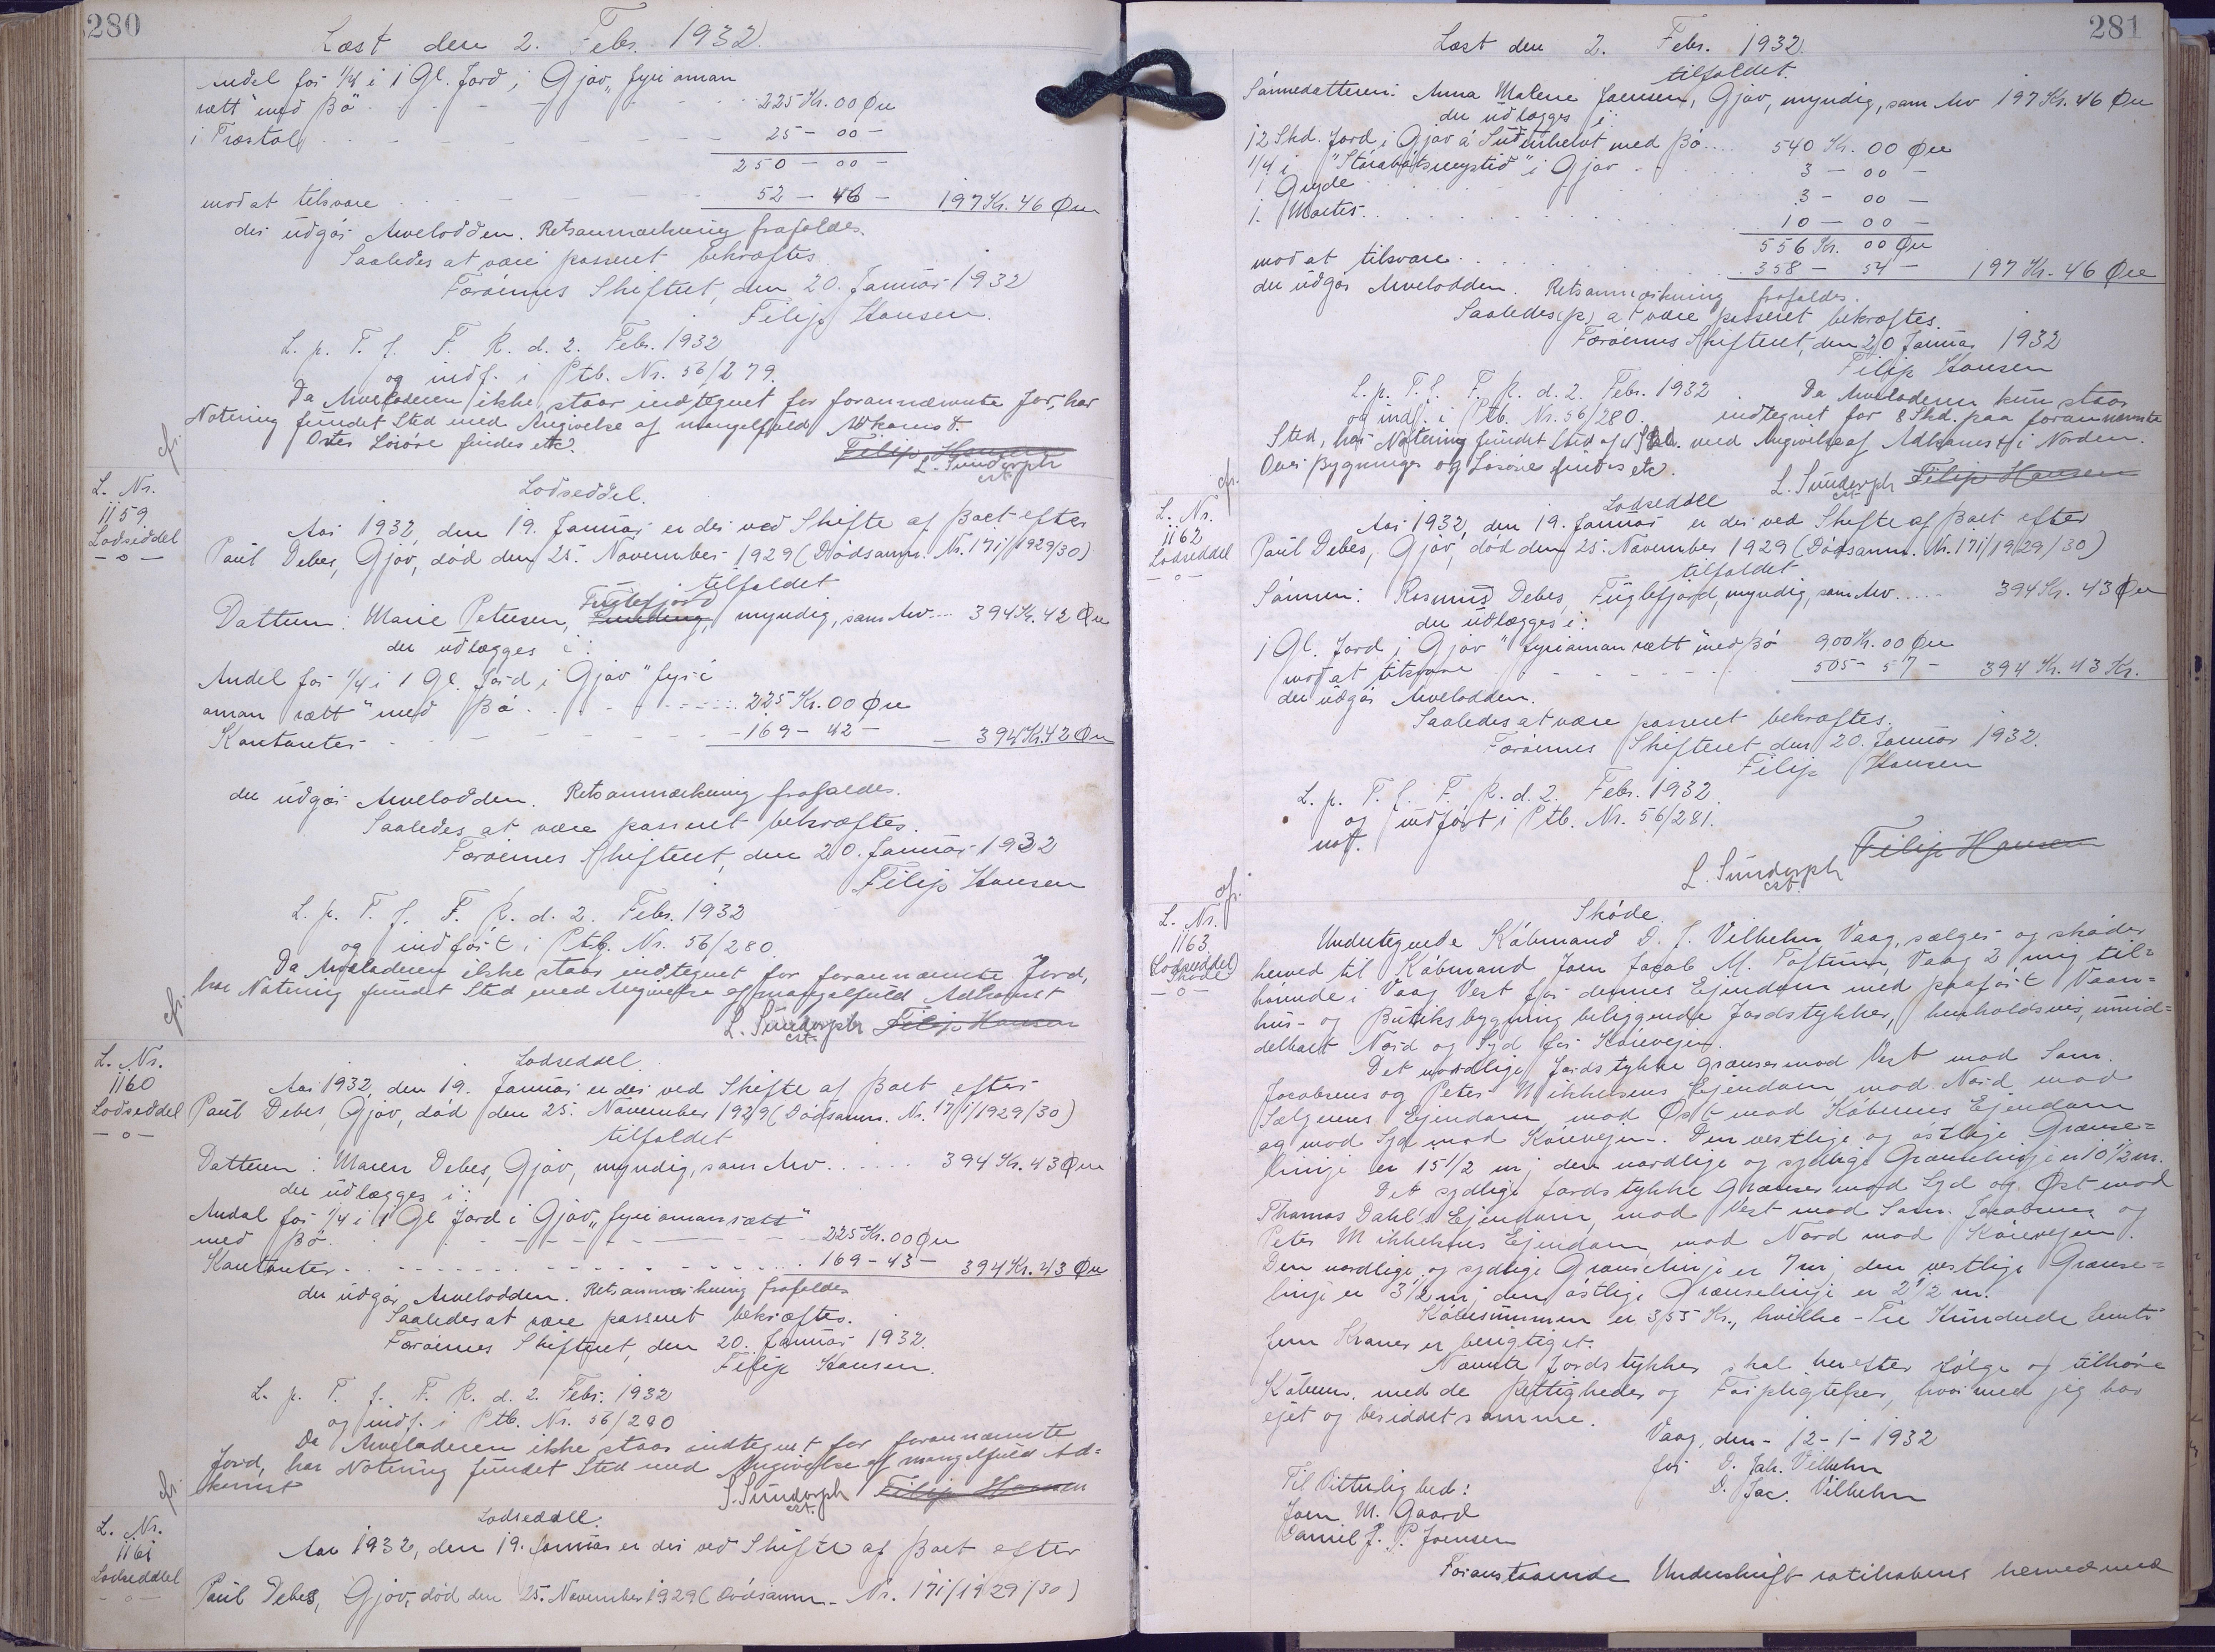 280
Læst den 2. Febr. 1932.
Andel for 1/4 i 1 Gl. Jord, i Gjov "fyri oman
rætt" med Bø - - - 225 Kr. 00 Øre
i Træstol - - - 25 - 00 -
250 - 00 -
mod at tilsvare - - - 52 - 46 - 197 Kr. 46 Øre
der udgør Arvelodden. Retsanmærkning frafaldes.
Saaledes at være passeret bekræftes
Færøernes Skifteret, den 20. Januar 1932
Filip Hansen.
L. p. T. f. F. R. d. 2. Febr. 1932
og indf. i Ptb. Nr. 56/279.
Da Arveladeren ikke staar indtegnet for forannævnte Jor, har
Notering fundet Sted med Angivelse af mangelfuld Adkomst.
Ostes Løsøre findes etc.
Filip Hansen
L. Sundorph
cst.
cfr.
L. Nr.
1159
Lodseddel
- o -
Lodseddel.
Aar 1932, den 19. Januar er der ved Skifte af Boet efter
Paul Debes, Gjov, død den 25. November 1929 (Dødsanm. Nr. 171/1929/30)
tilfaldet
Fuglefjord
Datteren: Marie Petersen, Funding, myndig, som Arv ... 394 Kr. 42 Øre
der udlægges i:
Andel for 1/4 i 1 Gl. Jord i Gjov "fyri
oman rætt" med Bø - - - 225 Kr. 00 Øre
Kontanter - - - 169 - 42 - 394 Kr. 42 Øre
der udgør Arvelodden. Retsanmærkning frafaldes.
Saaledes at være passeret bekræftes.
Færøernes Skifteret, den 20. Januar 1932
Filip Hansen
L. p. T. f. F. R. d. 2. Febr. 1932
og indført i Ptb. Nr. 56/280.
Da Arveladeren ikke staar indtegnet for forannævnte Jord,
har Notering fundet Sted med Angivelse af mangelfuld Adkomst
L. Sundorph Filip Hansen
cst.
cfr.
L. Nr.
1160
Lodseddel
- o -
Lodseddel.
Aar 1932, den 19. Januar er der ved Skifte af Boet efter
Paul Debes, Gjov, død den 25. November 1929 (Dødsanm. Nr. 171/1929/30)
tilfaldet
Datteren: Maren Debes, Gjov, myndig, som Arv ...... 394 Kr. 43 Øre
der udlægges i:
Andel for 1/4 i 1 Gl Jord i Gjov "fyri oman rætt"
med Bø. - - - 225 Kr. 00 Øre
Kontanter - - - 169 - 43 - 394 Kr. 43 Øre
der udgør Arvelodden. Retsanmærkning frafaldes
Saaledes at være passeret bekræftes.
Færøernes Skifteret, den 20. Januar 1932.
Filip Hansen.
L. p. T. f. F. R. d. 2. Febr. 1932
og indf. i Ptb. Nr. 56/280
Da Arveladeren ikke staar indtegnet for forannævnte
Jord, har Notering fundet Sted med Angivelse af mangelfuld Ad=
komst
S. Sundorph Filip Hansen
cst.
cfr.
L. Nr.
1161
Lodseddel
- o -
Lodseddel.
Aar 1932, den 19. Januar er der ved Skifte af Boet efter
Paul Debes, Gjov, død den 25. November 1929 (Dødsanm. Nr. 171/1929/30)
281
Læst den 2. Febr. 1932.
tilfaldet.
Sønnedatteren: Anna Malene Joensen, Gjov, myndig, som Arv 197 Kr. 46 Øre
der udlægges i:
12 Skd. Jord i Gjov á Suðurhelvt med Bø .... 540 Kr. 00 Øre
1/4 i "Stórabátsneystið" i Gjov . . . 3 - 00 -
1 Gryde . . . 3 - 00 -
1. . . . 10 - 00 -
556 Kr. 00 Øre
mod at tilsvare . . . 358 - 54 - 197 Kr. 46 Øre
der udgør Arvelodden. Retsanmærkning frafaldes.
Saaledes (p) at være passeret bekræftes.
Færøernes Skifteret, den 20 Januar 1932
Filip Hansen
L. p. T. f. F. R. d. 2. Febr. 1932. Da Arveladeren kun staar
og indf. i Ptb. Nr. 56/280. indtegnet for 8 Skd. paa forannævnte
Sted, har Notering fundet Sted af 4 Skd. med Angivelse af Adkomst i Norden.
Over Bygninger og Løsøre findes etc.
L. Sundorph Filip Hansen
cst.
cfr.
L. Nr.
1162
Lodseddel
- o -
Lodseddel
Aar 1932, den 19. Januar er der ved Skifte af Boet efter
Paul Debes, Gjov, død den 25. November 1929 (Dødsanm. Nr. 171/1929/30)
tilfaldet
Sønnen: Rasmus Debes, Fuglefjord, myndig, som Arv ..... 394 Kr. 43 Øre
der udlægges i:
1 Gl. Jord i Gjov "fyri oman rætt" med Bø 900 Kr. 00 Øre
mod at tilsvare - - - 505 - 57 - 394 Kr. 43 Kr.
der udgør Arvelodden.
Saaledes at være passeret bekræftes.
Færøernes Skifteret den 20. Januar 1932.
Filip Hansen
L. p. T. f. F. R. d. 2. Febr. 1932.
og indført i Ptb. Nr. 56/281.
not.
Filip Hansen
L. Sundorph
cst.
cfr.
L. Nr.
1163
Lodseddel
Skøde
- o -
Skøde.
Undertegnede Købmand D. J. Vilhelm, Vaag, sælger og skøder
herved til Købmand Joen Jacob M. Poftum, Vaag 2 mig til=
hørende i Vaag Vest for dennes Ejendom med paaført Vaan=
hus- og Butiksbygning beliggende Jordstykker, henholdsvis, umid=
delbart Nord og Syd for Kørevejen.
Det nordlige Jordstykke grænser mod Vest mod Sam.
Jacobsens og Peter Mikkelsens Ejendom mod Nord mod
Sælgerens Ejendom mod Øst mod Køberens Ejendom
og mod Syd mod Kørevejen. Den vestlige og østlige Grænse=
linje er 15 1/2 m; den nordlige og sydlige Grænselinje er 10 1/2 m.
Det sydlige Jordstykke grænser mod Syd og Øst mod
Thomas Dahl's Ejendom, mod Vest mod Sam. Jacobsens og
Peter Mikkelsens Ejendom, mod Nord mod Kørevejen.
Den nordlige og sydlige Grænselinje er 7 m; den vestlige Grænse=
linje er 3 1/2 m; den østlige Grænselinje er 2 1/2 m.
Købesummen er 355 Kr., hvilke - Tre Hundrede femti
fem Kroner er berigtiget.
Nævnte Jordstykker skal herefter følge og tilhøre
Køberen med de Rettigheder og Forpligtelser, hvormed jeg har
ejet og besiddet samme.
Vaag, den - 12 - 1 - 1932
for D. Joh. Vilhelm
D. Jac. Vilhelm
Til Vitterlighed:
Joen M. Gaard
Daniel J. P. Joensen
Foranstaaende Underskrift ratihaberes herved med